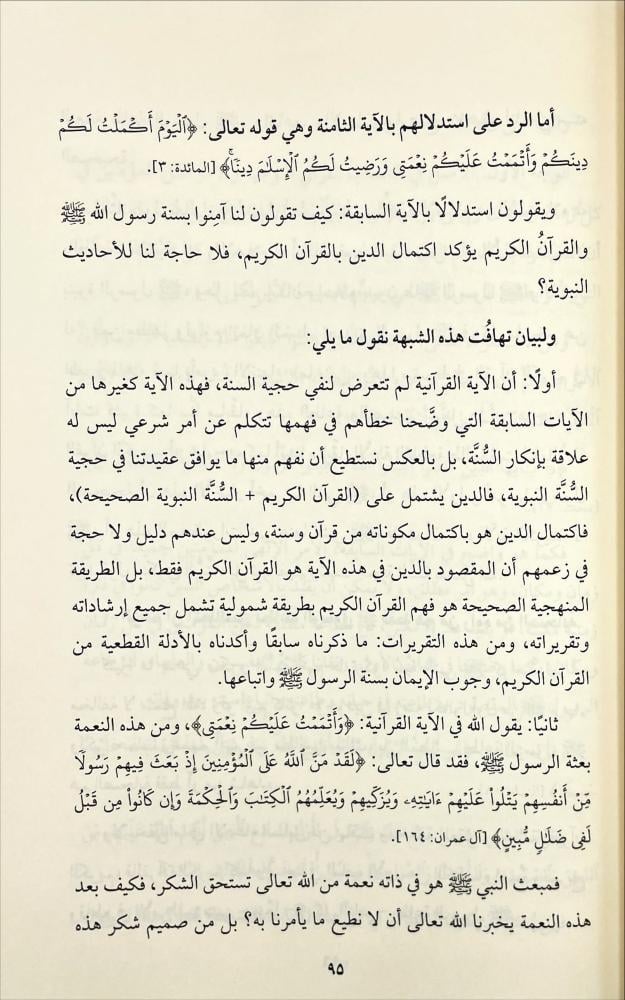 أما الرد على استدلالهم بالآية الثامنة وهي قوله تعالى: ﴿ٱلۡيَوۡمَ أَكۡمَلۡتُ لَكُمۡ
دِينَكُمۡ وَأَتۡمَمۡتُ عَلَيۡكُمۡ نِعۡمَتِي وَرَضِيتُ لَكُمُ ٱلۡإِسۡلَٰمَ دِينٗاۚ﴾ [المائدة: ٣].
ويقولون استدلالًا بالآية السابقة: كيف تقولون لنا آمِنوا بسنة رسول الله ﷺ
والقرآنُ الكريم يؤكد اكتمال الدين بالقرآن الكريم، فلا حاجة لنا للأحاديث
النبوية؟
ولبيان تهافُت هذه الشبهة نقول ما يلي:
أولًا: أن الآية القرآنية لم تتعرض لنفي حجية السنة، فهذه الآية كغيرها من
الآيات السابقة التي وضَّحنا خطأهم في فهمها تتكلم عن أمر شرعي ليس له
علاقة بإنكار السُّنَّة، بل بالعكس نستطيع أن نفهم منها ما يوافق عقيدتنا في حجية
السُّنَّة النبوية، فالدين يشتمل على (القرآن الكريم + السُّنَّة النبوية الصحيحة)،
فاكتمال الدين هو باكتمال مكوناته من قرآن وسنة، وليس عندهم دليل ولا حجة
في زعمهم أن المقصود بالدين في هذه الآية هو القرآن الكريم فقط، بل الطريقة
المنهجية الصحيحة هو فهم القرآن الكريم بطريقة شمولية تشمل جميع إرشاداته
وتقريراته، ومن هذه التقريرات: ما ذكرناه سابقًا وأكدناه بالأدلة القطعية من
القرآن الكريم، وجوب الإيمان بسنة الرسول ﷺ واتباعها.
ثانيًا: يقول الله في الآية القرآنية: ﴿وَأَتۡمَمۡتُ عَلَيۡكُمۡ نِعۡمَتِي﴾، ومن هذه النعمة
بعثة الرسول ﷺ، فقد قال تعالى: ﴿لَقَدۡ مَنَّ ٱللَّهُ عَلَى ٱلۡمُؤۡمِنِينَ إِذۡ بَعَثَ فِيهِمۡ رَسُولٗا
مِّنۡ أَنفُسِهِمۡ يَتۡلُواْ عَلَيۡهِمۡ ءَايَٰتِهِۦ وَيُزَكِّيهِمۡ وَيُعَلِّمُهُمُ ٱلۡكِتَٰبَ وَٱلۡحِكۡمَةَ وَإِن كَانُواْ مِن قَبۡلُ
لَفِي ضَلَٰلٖ مُّبِينٍ﴾ [آل عمران: ١٦٤].
فمبعث النبي ﷺ هو في ذاته نعمة من الله تعالى تستحق الشكر، فكيف بعد
هذه النعمة يخبرنا الله تعالى أن لا نطيع ما يأمرنا به؟ بل من صميم شكر هذه
٩٥